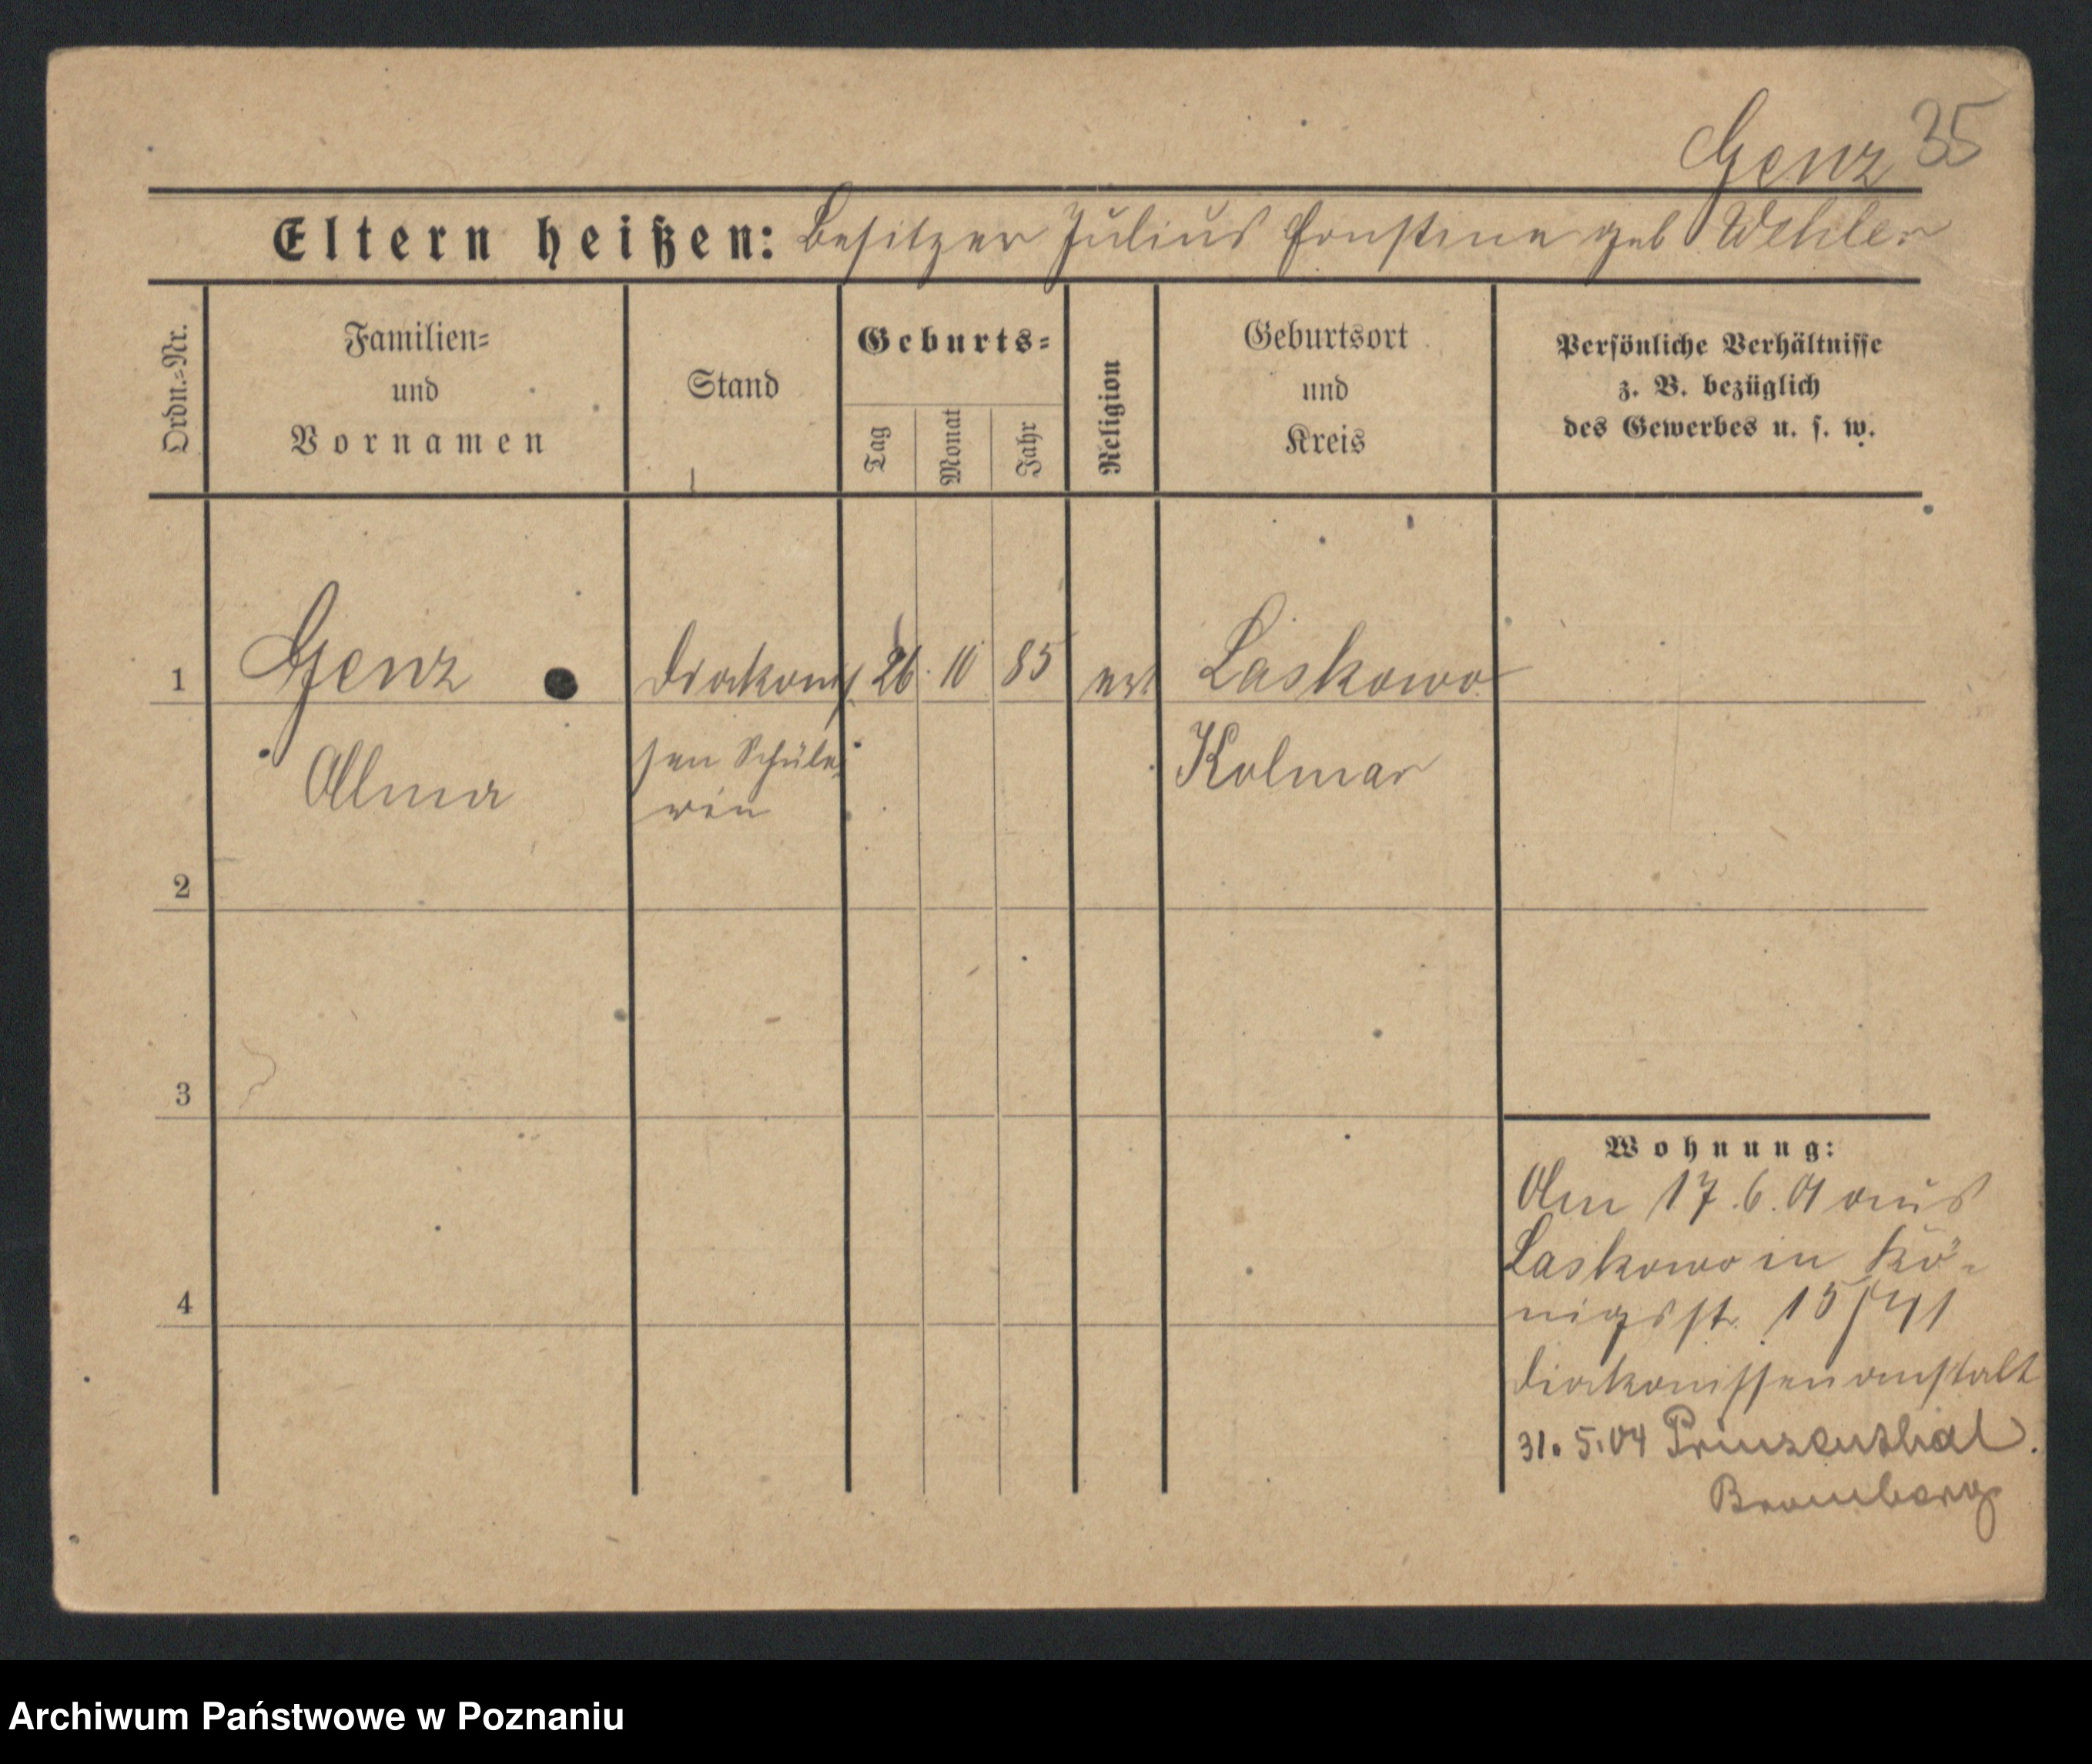 Genz 35
Eltern heißen: Besitzer Julius Ernstine geb Wehler
Ordn.=Nr.
Familien=
und
Vornamen
Stand
Geburts=
Tag
Monat
Jahr
Religion
Geburtsort
und
Kreis
Persönliche Verhältnisse
z. B. bezüglich
des Gewerbes u. s. w.
1 Genz Diakonis 26. 10 85 Laskowo
Alma sen Schüle Kolmar
rin
2
3
4
Wohnung:
Am 17.6.01 aus
Laskowo in Kö-
nigsstr. 15/
Diakonissenanstalt
31. 5. 04 Prinzenthal.
Bromberg
Archiwum Państwowe w Poznaniu